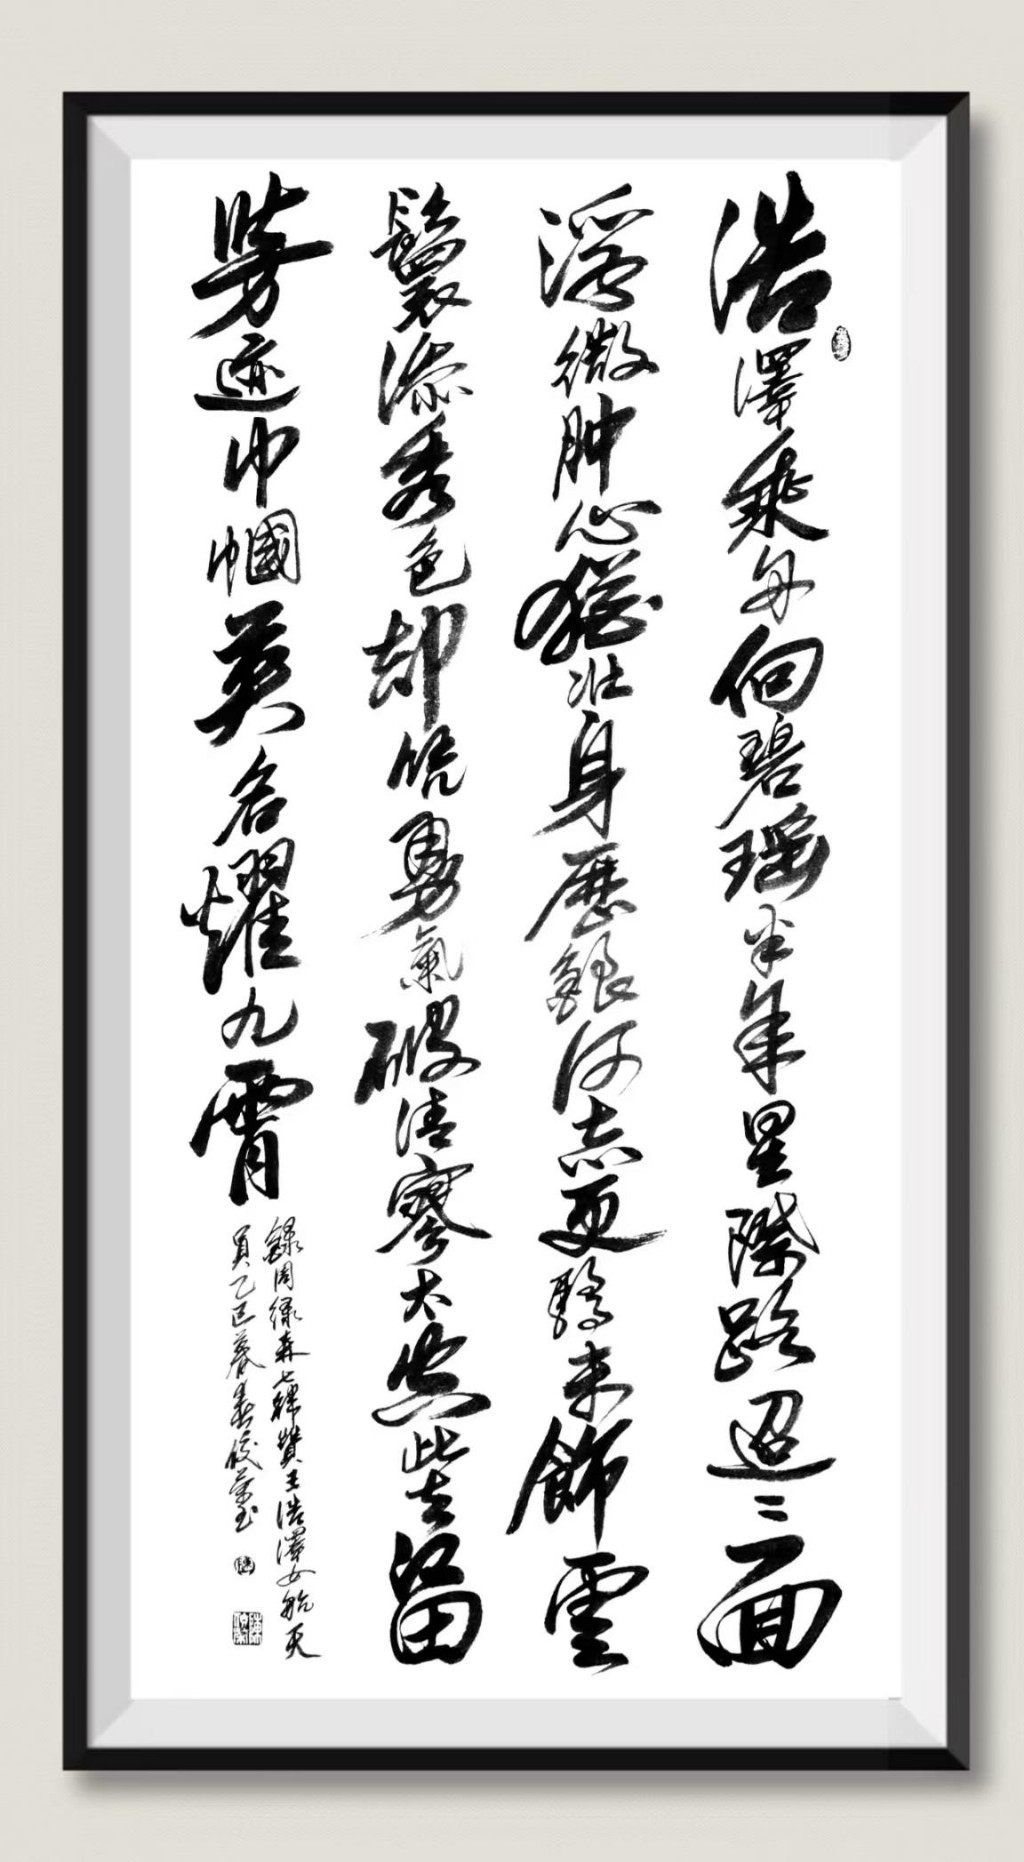 浩澤乘舟向碧瑤半年星際路迢〻面
浮微肿心猶壮身歷銀河志更驕未飾雲
鬟添秀色却凭勇氣破清寥太空此去留
芳迹巾幗英名耀九霄
錄周绿森七律贊王浩澤女航天
員乙巳暮春俊